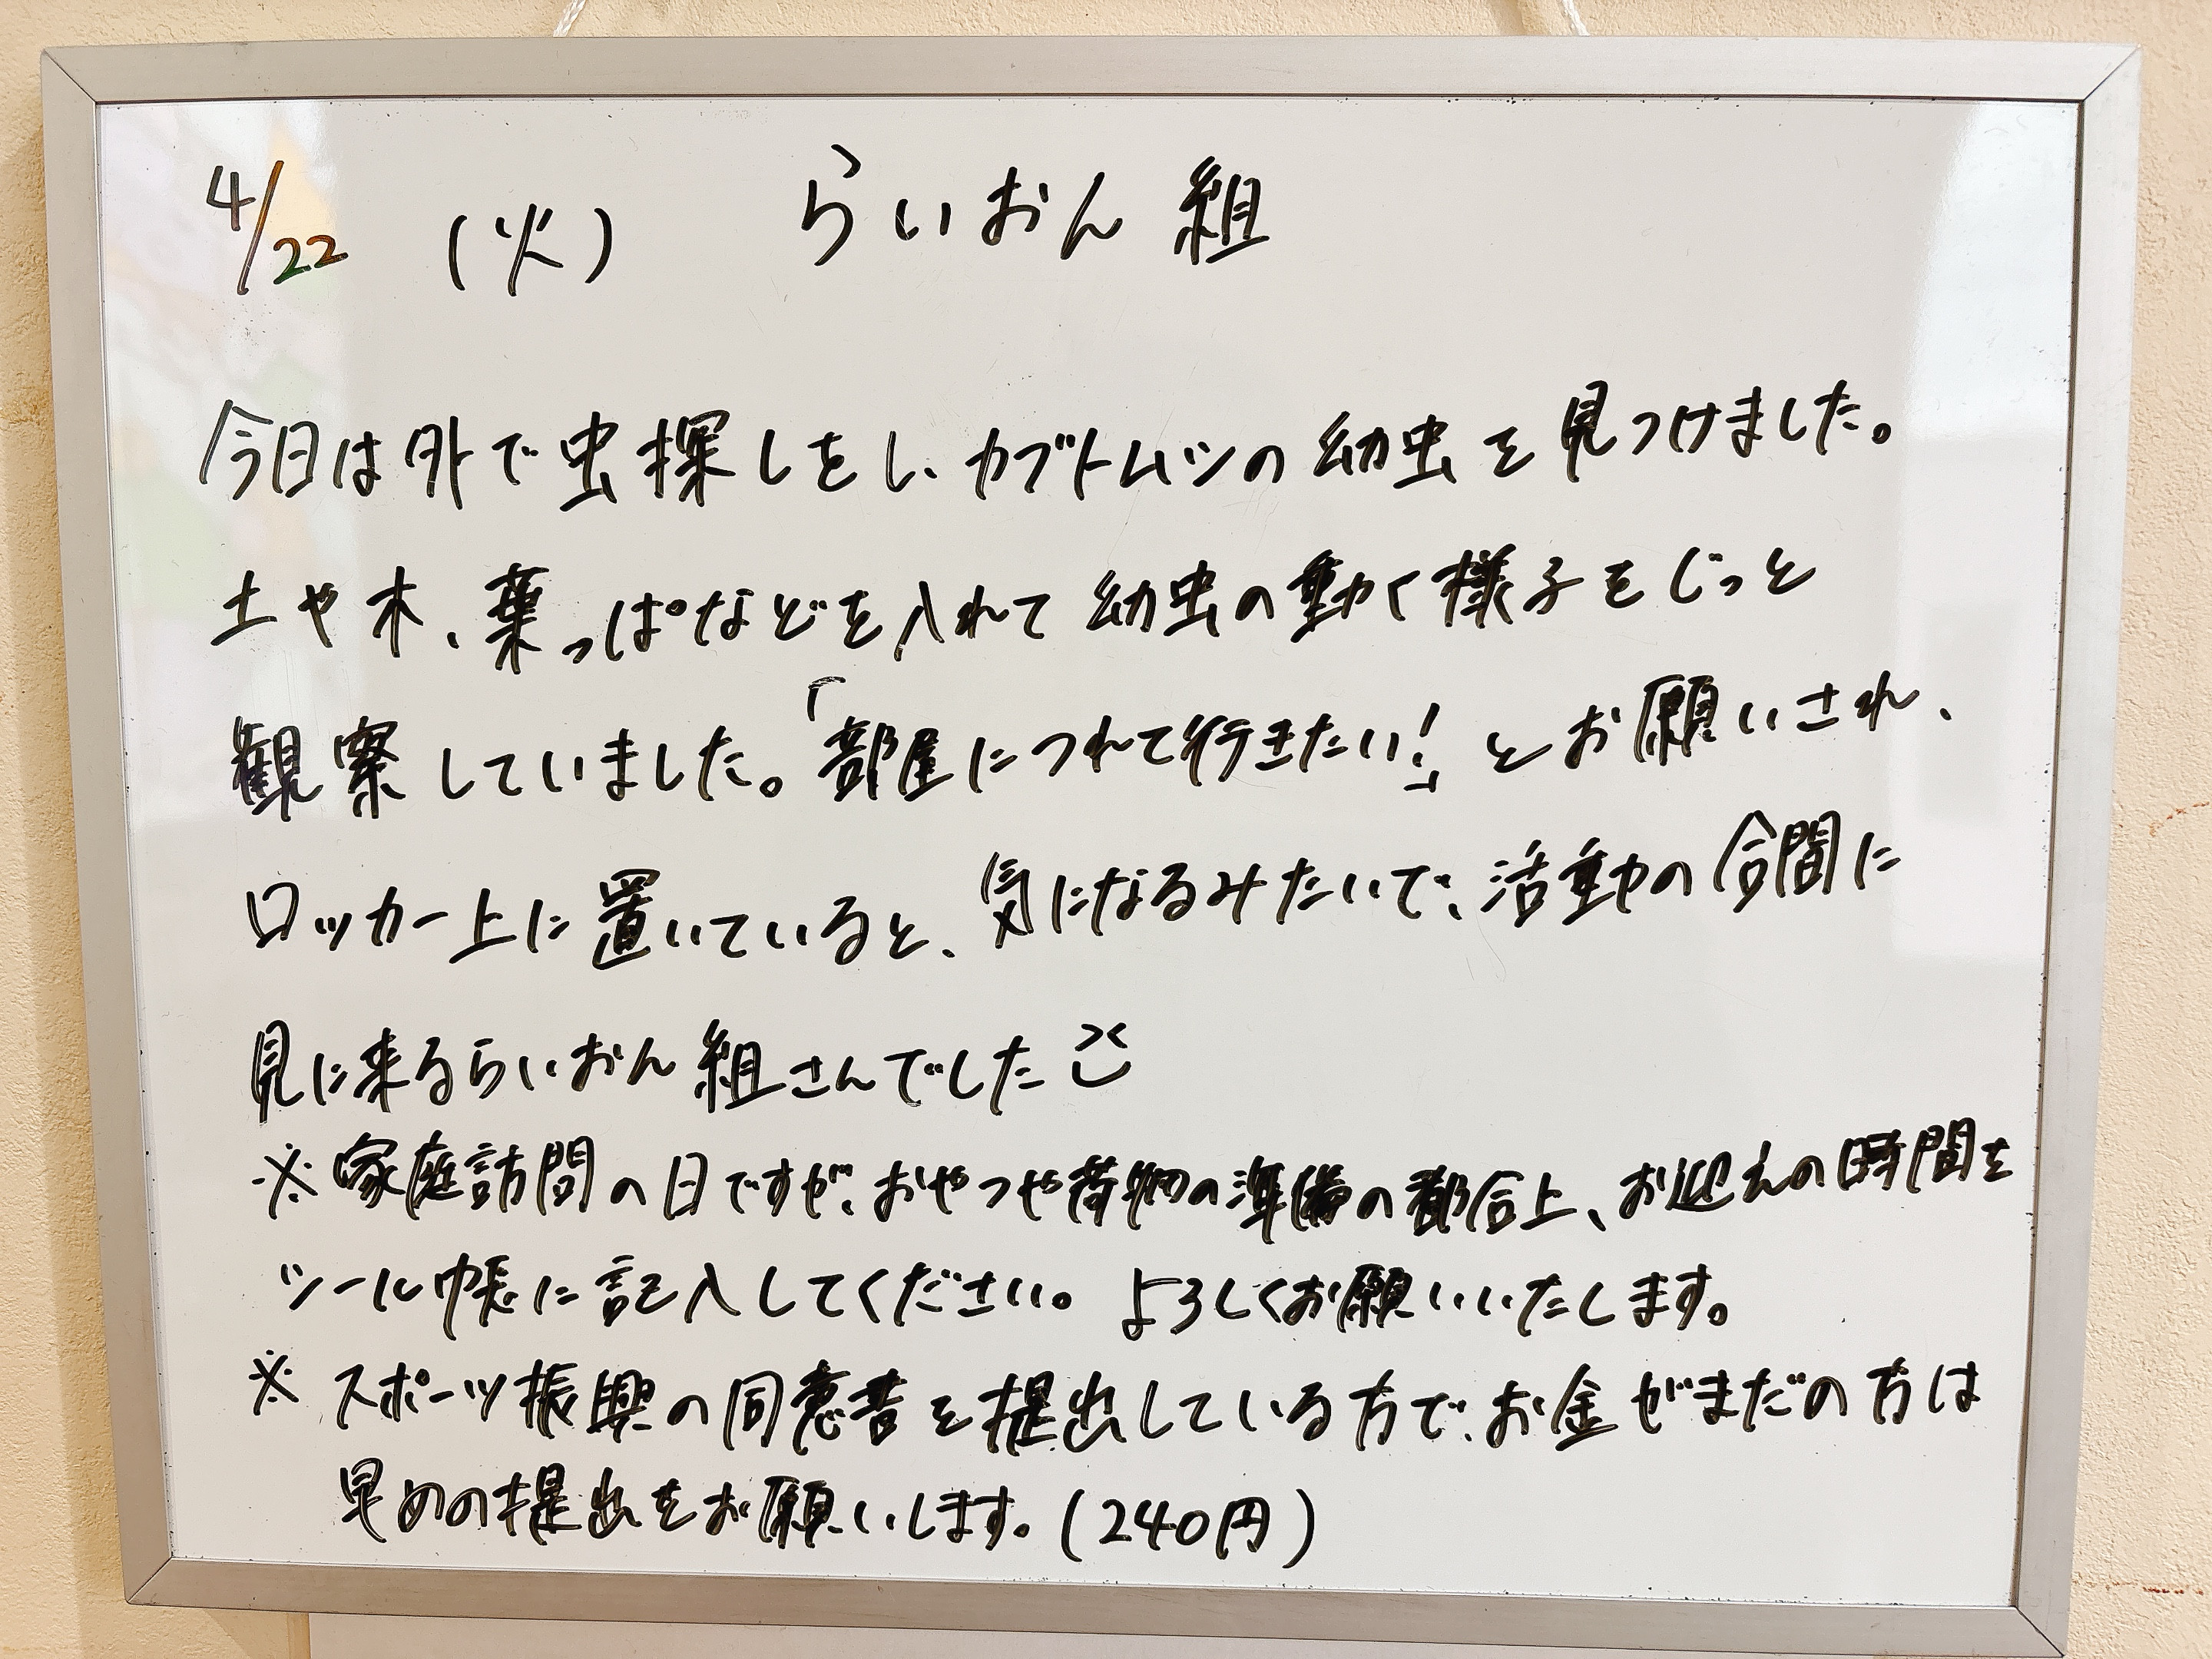 4/22 (火) らいおん組
今日は外で虫探しをし、カブトムシの幼虫を見つけました。
土や木、葉っぱなどを入れて幼虫の動く様子をじっと
観察していました。「部屋につれて行きたい!」とお願いされ、
ロッカー上に置いていると、気になるみたいで、活動の合間に
見に来るらいおん組さんでした
※家庭訪問の日ですが、おやつや荷物の準備の都合上、お迎えの時間を
シール帳に記入してください。よろしくお願いいたします。
※スポーツ振興の同意書を提出している方で、お金がまだの方は
早めの提出をお願いします。(240円)